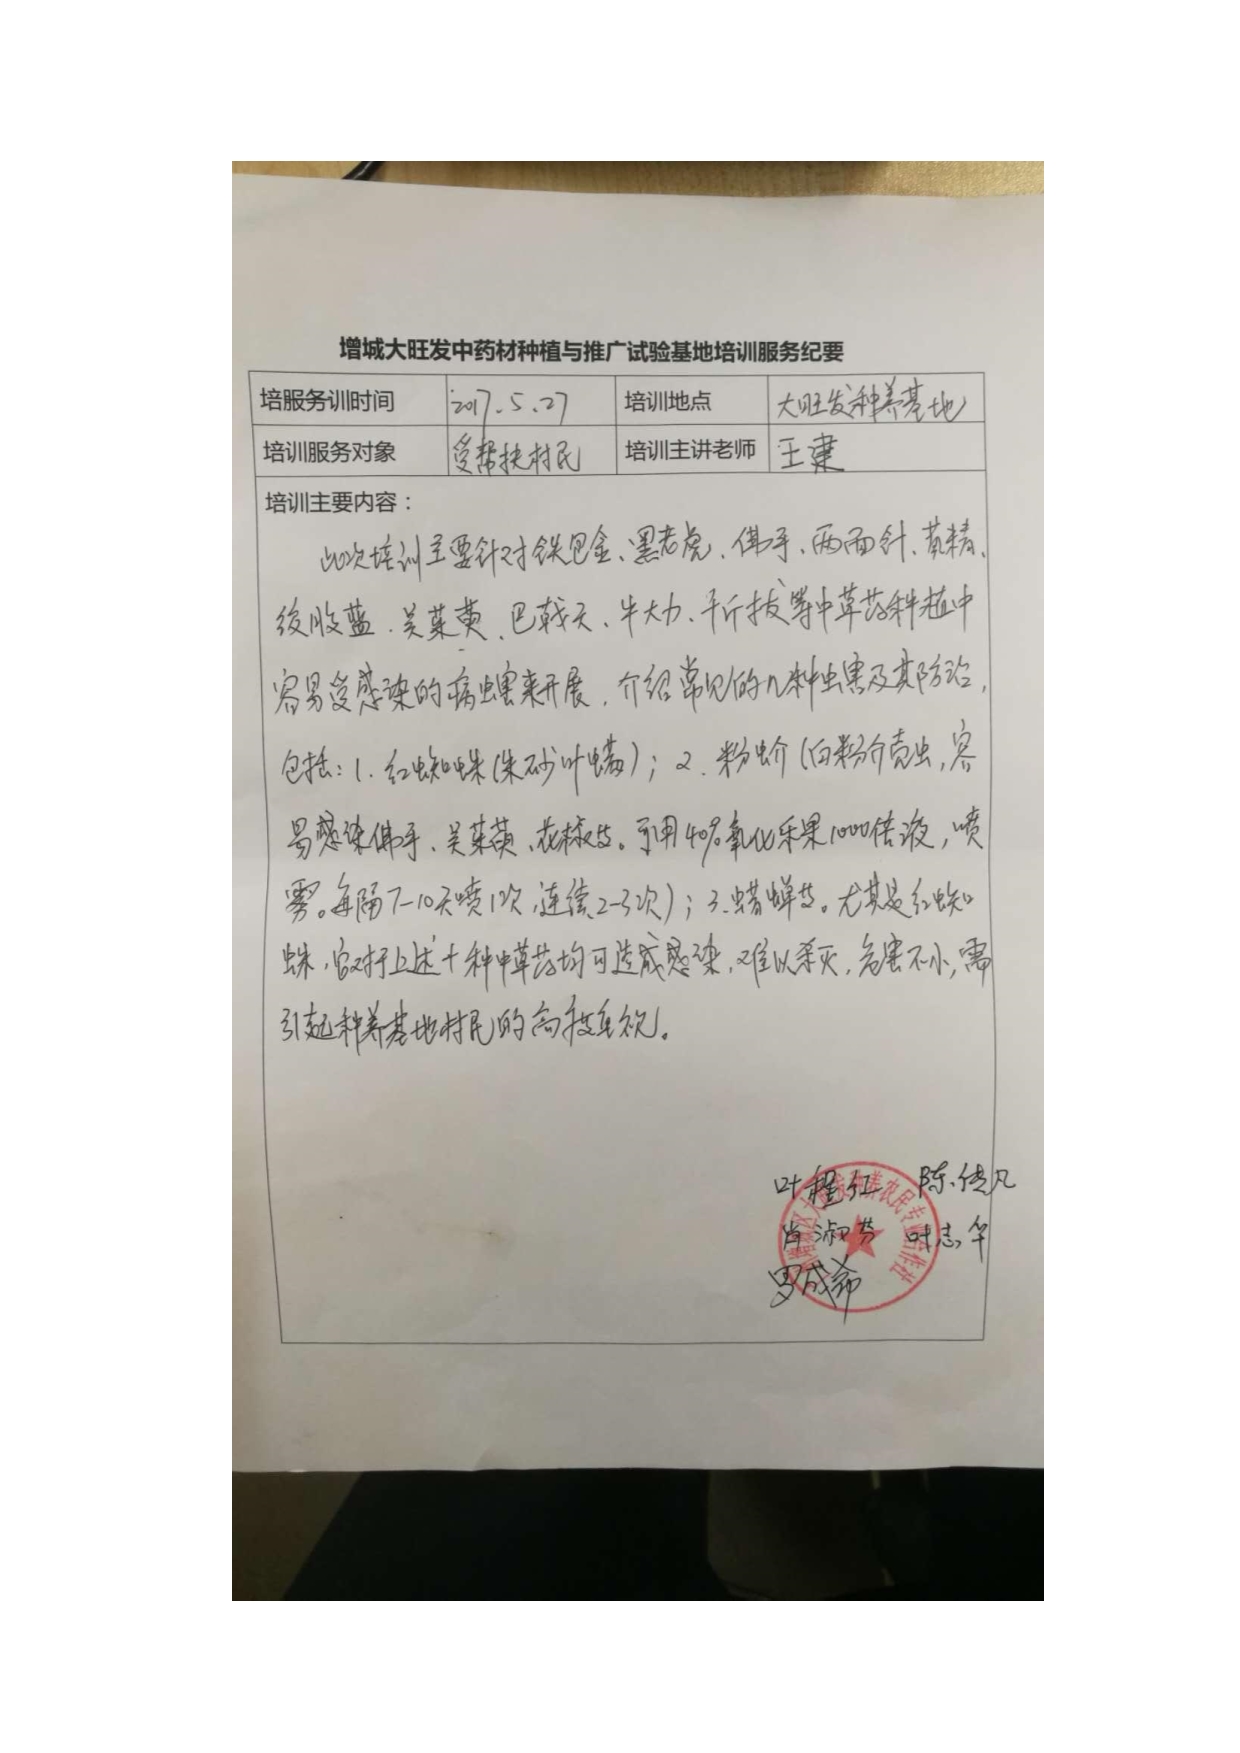 增城大旺发中药材种植与推广试验基地培训服务纪要
培服务训时间 2017.5.27 培训地点 大旺发种养基地
培训服务对象 受帮扶村民 培训主讲老师 王建
培训主要内容：
此次培训主要针对铁包金、黑老虎、佛手、两面针、黄精、
绞股蓝、吴茱萸、巴戟天、牛大力、千斤拔等中草药种植中
容易受感染的病虫害来开展，介绍常见的几种虫害及其防治，
包括：1.红蜘蛛(朱砂叶螨)；2.粉蚧(白粉介壳虫，容
易感染佛手、吴茱萸、花椒等。可用40%氧化乐果1000倍液，喷
雾。每隔7-10天喷1次，连续2-3次)；3.蜡蝉等。尤其是红蜘
蛛，它对于上述十种中草药均可造成感染，难以杀灭，危害不小，需
引起种养基地村民的高度重视。
叶程红 陈倩凡
肖淑芬 叶志华
罗成
增城区大旺发种养农民专业合作社